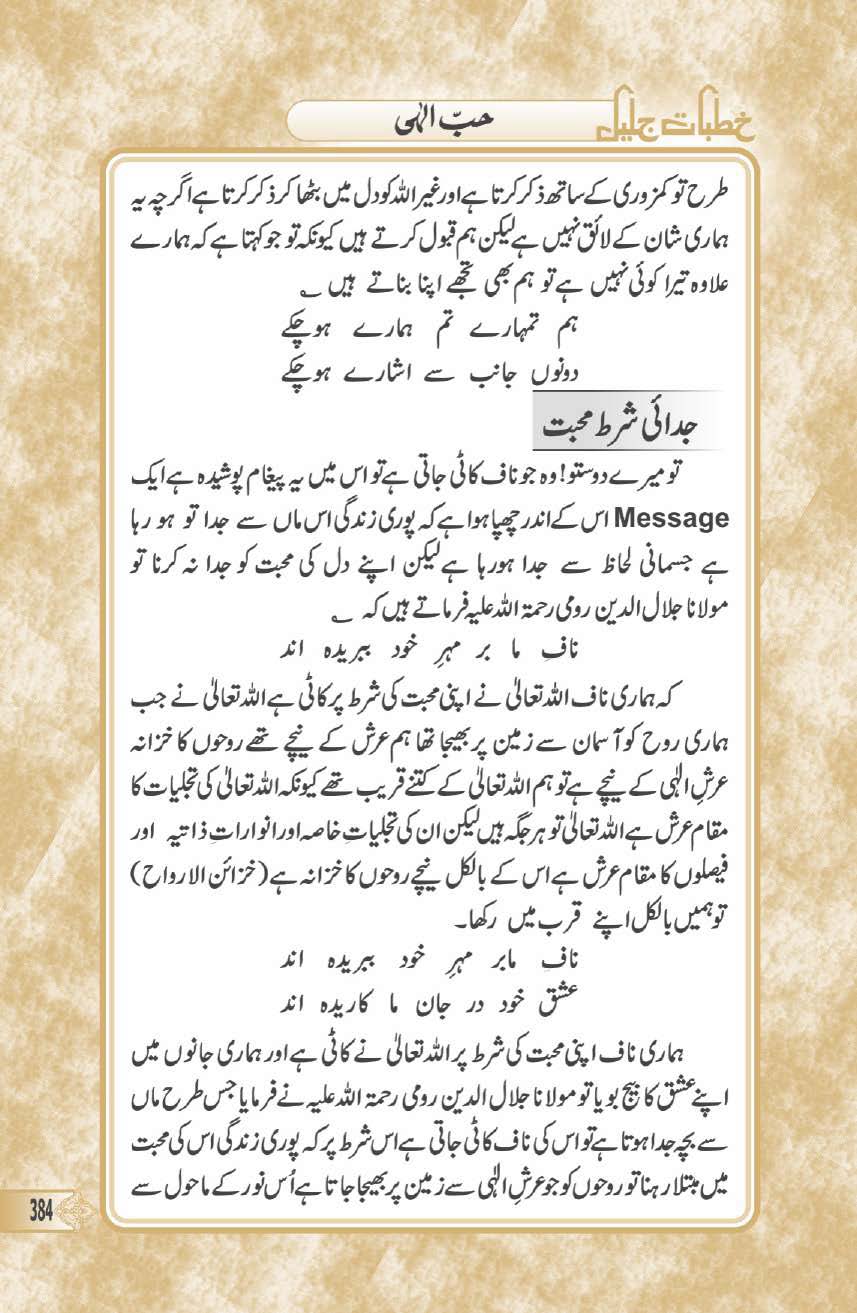 خطبات جلیل
حبّ الہٰی
طرح تو کمزوری کے ساتھ ذکر کرتا ہے اور غیر اللہ کو دل میں بٹھا کر ذکر کرتا ہے اگرچہ یہ
ہماری شان کے لائق نہیں ہے لیکن ہم قبول کرتے ہیں کیونکہ تو جو کہتا ہے کہ ہمارے
علاوہ تیرا کوئی نہیں ہے تو ہم بھی تجھے اپنا بناتے ہیں ؎
ہم تمہارے تم ہمارے ہوچکے
دونوں جانب سے اشارے ہوچکے
جدائی شرط محبت
تو میرے دوستو! وہ جو ناف کاٹی جاتی ہے تو اس میں یہ پیغام پوشیدہ ہے ایک
Message اس کے اندر چھپا ہوا ہے کہ پوری زندگی اس ماں سے جدا تو ہو رہا
ہے جسمانی لحاظ سے جدا ہورہا ہے لیکن اپنے دل کی محبت کو جدا نہ کرنا تو
مولانا جلال الدین رومی رحمۃ اللہ علیہ فرماتے ہیں کہ ؎
نافِ ما بر مہرِ خود ببریدہ اند
کہ ہماری ناف اللہ تعالیٰ نے اپنی محبت کی شرط پر کاٹی ہے اللہ تعالیٰ نے جب
ہماری روح کو آسمان سے زمین پر بھیجا تھا ہم عرش کے نیچے تھے روحوں کا خزانہ
عرشِ الٰہی کے نیچے ہے تو ہم اللہ تعالیٰ کے کتنے قریب تھے کیونکہ اللہ تعالیٰ کی تجلیات کا
مقام عرش ہے اللہ تعالیٰ تو ہر جگہ ہیں لیکن ان کی تجلیاتِ خاصہ اور انواراتِ ذاتیہ اور
فیصلوں کا مقام عرش ہے اس کے بالکل نیچے روحوں کا خزانہ ہے (خزائن الارواح)
تو ہمیں بالکل اپنے قرب میں رکھا۔
نافِ مابر مہرِ خود ببریدہ اند
عشق خود در جان ما کاریدہ اند
ہماری ناف اپنی محبت کی شرط پر اللہ تعالیٰ نے کاٹی ہے اور ہماری جانوں میں
اپنے عشق کا بیج بویا تو مولانا جلال الدین رومی رحمۃ اللہ علیہ نے فرمایا جس طرح ماں
سے بچہ جدا ہوتا ہے تو اس کی ناف کاٹی جاتی ہے اس شرط پر کہ پوری زندگی اس کی محبت
میں مبتلا رہنا تو روحوں کو جو عرشِ الٰہی سے زمین پر بھیجا جاتا ہے اُس نور کے ماحول سے
384